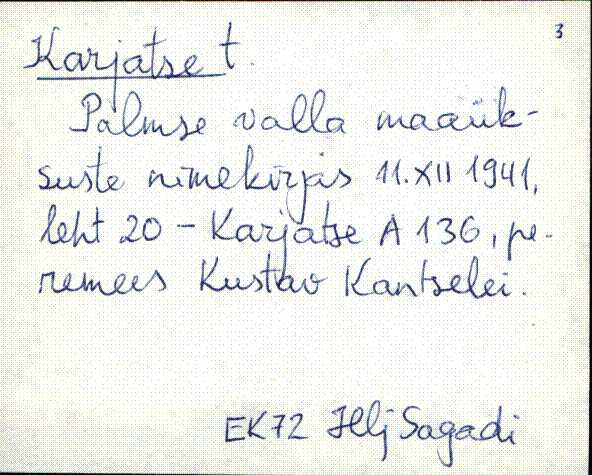 3
Karjatse t.
Palmse valla maaük-
suste nimekirjas 11.XII 1941,
leht 20 - Karjatse A.136, pe-
remees Kustav Kantselei.
EK72 Hlj Sagadi